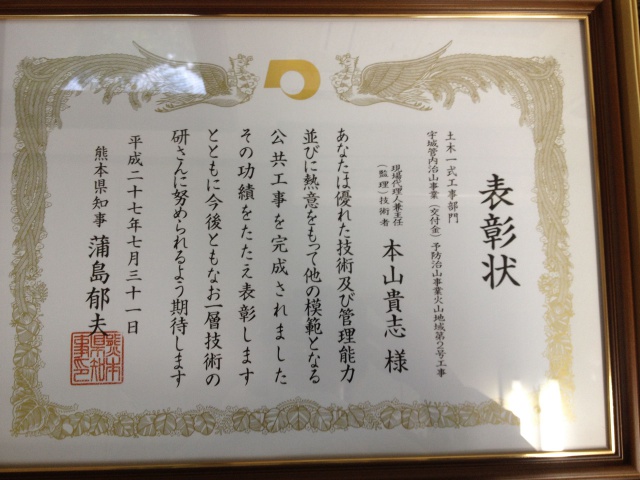 表彰状
土木一式工事部門
宇城管内治山事業(交付金)予防治山事業火山地域第2号工事
現場代理人兼主任
(監理)技術者
本山貴志 様
あなたは優れた技術及び管理能力
並びに熱意をもって他の模範となる
公共工事を完成されました
その功績をたたえ表彰します
とともに今後ともなお一層技術の
研さんに努められるよう期待します
平成二十七年七月三十一日
熊本県知事 蒲島郁夫
熊本県知事之印